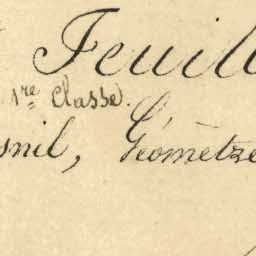 Feuill
1re Classe.
snil, Géomètre